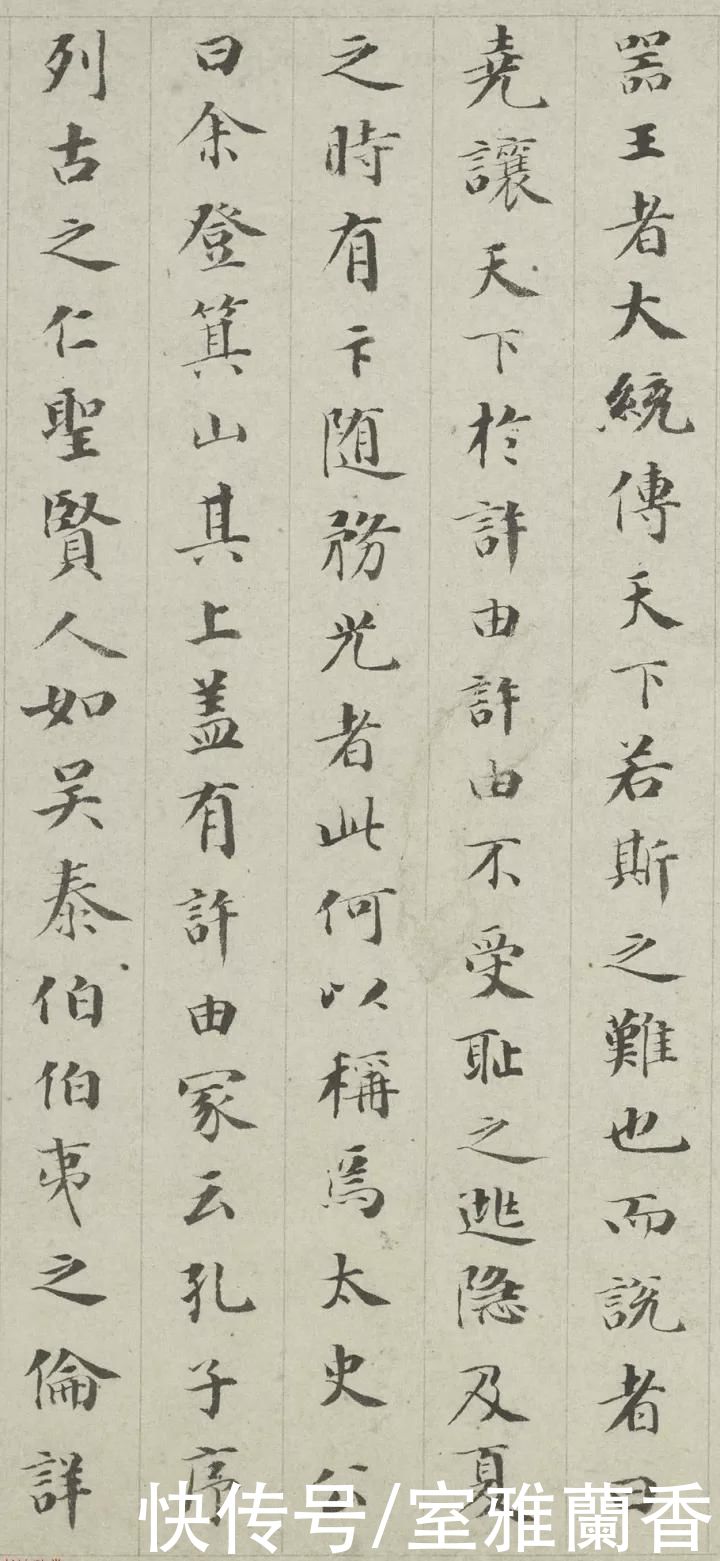 器王者大統傳天下若斯之難也而說者曰
堯讓天下於許由許由不受恥之逃隱及夏
之時有卞随務光者此何以稱焉太史公
曰余登箕山其上盖有許由冢云孔子序
列古之仁聖賢人如吴泰伯伯夷之倫詳
快传号/室雅蘭香